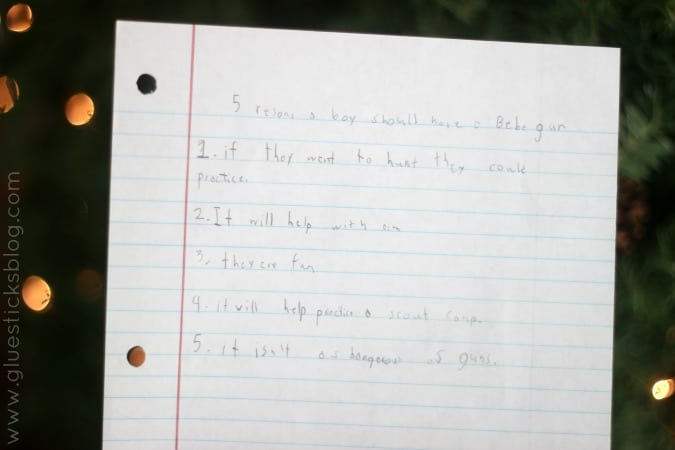 5 resons a boy should have a Bebe gun
1. if they went to hunt they could
practice.
2. It will help with aim
3. they are fun
4. it will help practice a scout camp.
5. it isn't as dangerous as guns.
www.gluesticksblog.com